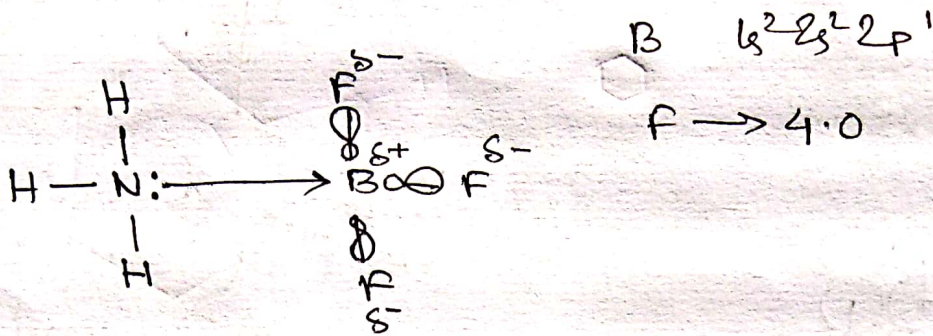 B 1s² 2s² 2p¹
F → 4.0
H
H — N: → B δ+ F δ-
H
F δ-
F
δ-